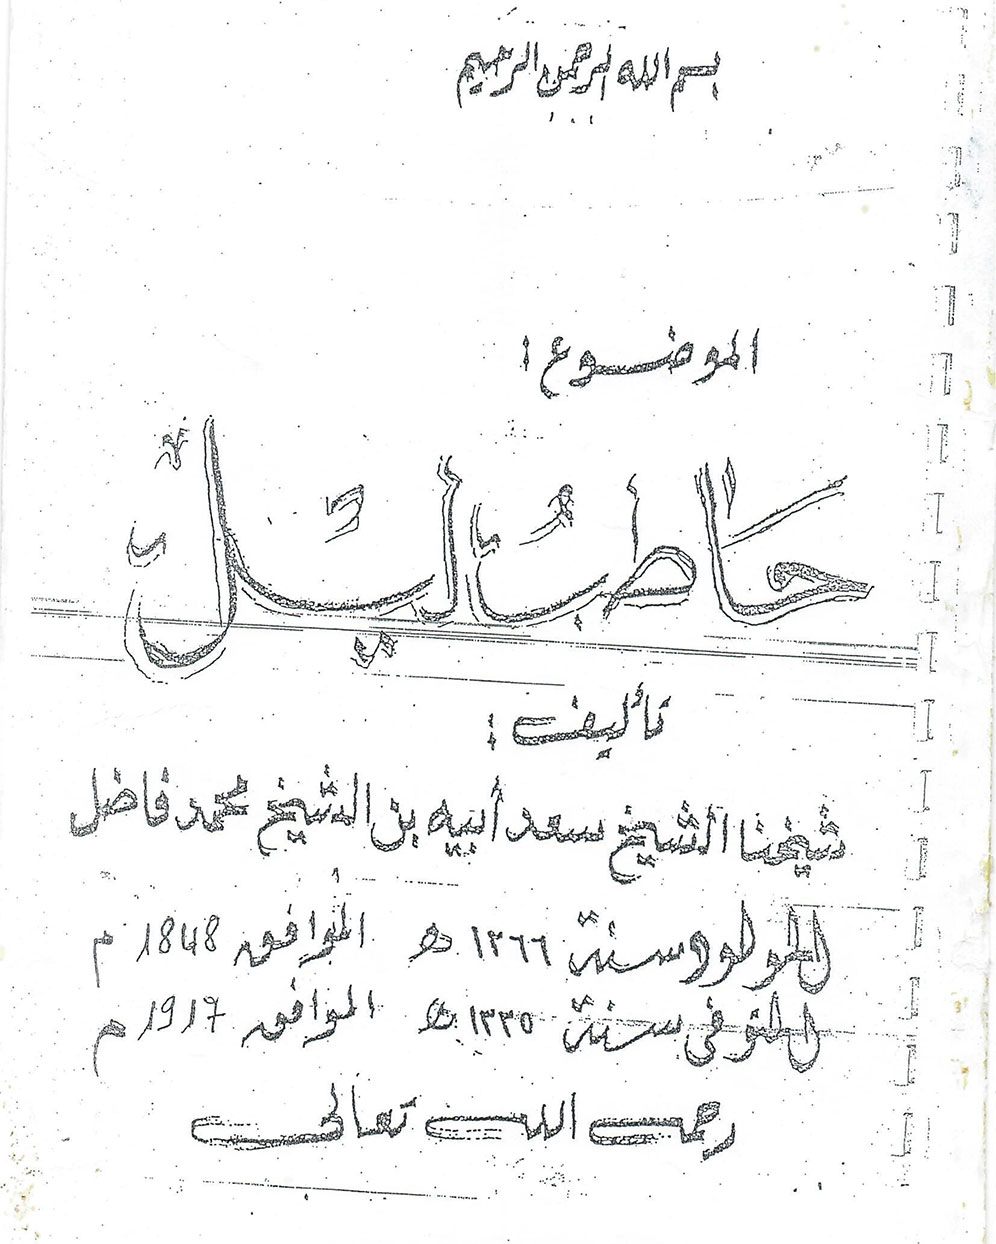 بسم الله الرحمن الرحيم
الموضوع :
حاطب ليل
تأليف :
شيخنا الشيخ سعد أبيه بن الشيخ محمد فاضل
المولود سنة ١٢٦٦ ه الموافق 1848 م
المتوفى سنة ١٣٣٥ ه الموافق 1917 م
رحمه الله تعالى